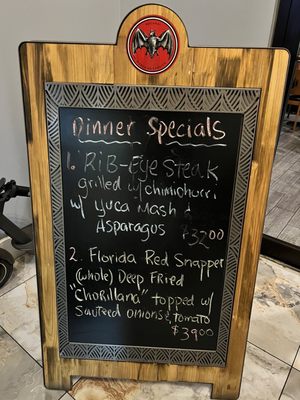 Dinner Specials
1. RiB-Eye Steak
grilled w/ chimichurri
w/ yuca Mash &
Asparagus $32.00
2. Florida Red Snapper
(whole) Deep Fried
"Chorillana" topped w/
sauteed onions & tomato
$39.00